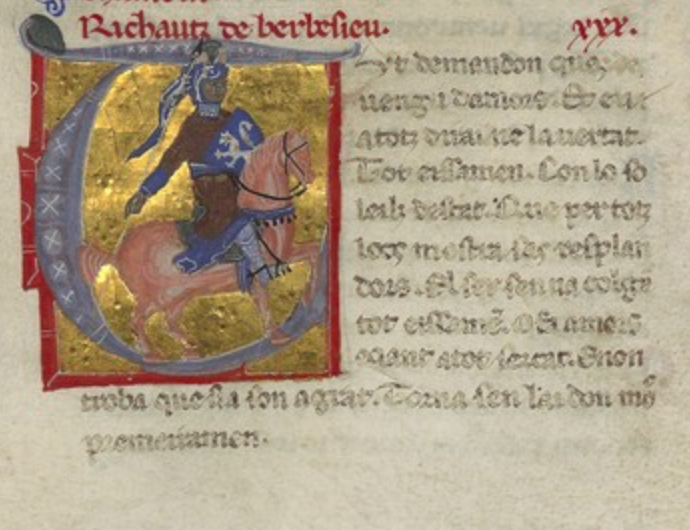 Richautz de berbesieu. xxx.
Tut demandon ques de
uengu damors. Et eu
a totz dirai ne la uertat.
Tot eissamen. Con lo so
leilz destat. Que per totz
locs mostra sas resplan
dors. El ser sen ua colgar
tot eissamen. O fa amors
e quant a tot sercat. E non
troba que sia son agrat. Torna sen lai don mo
premeiramen.